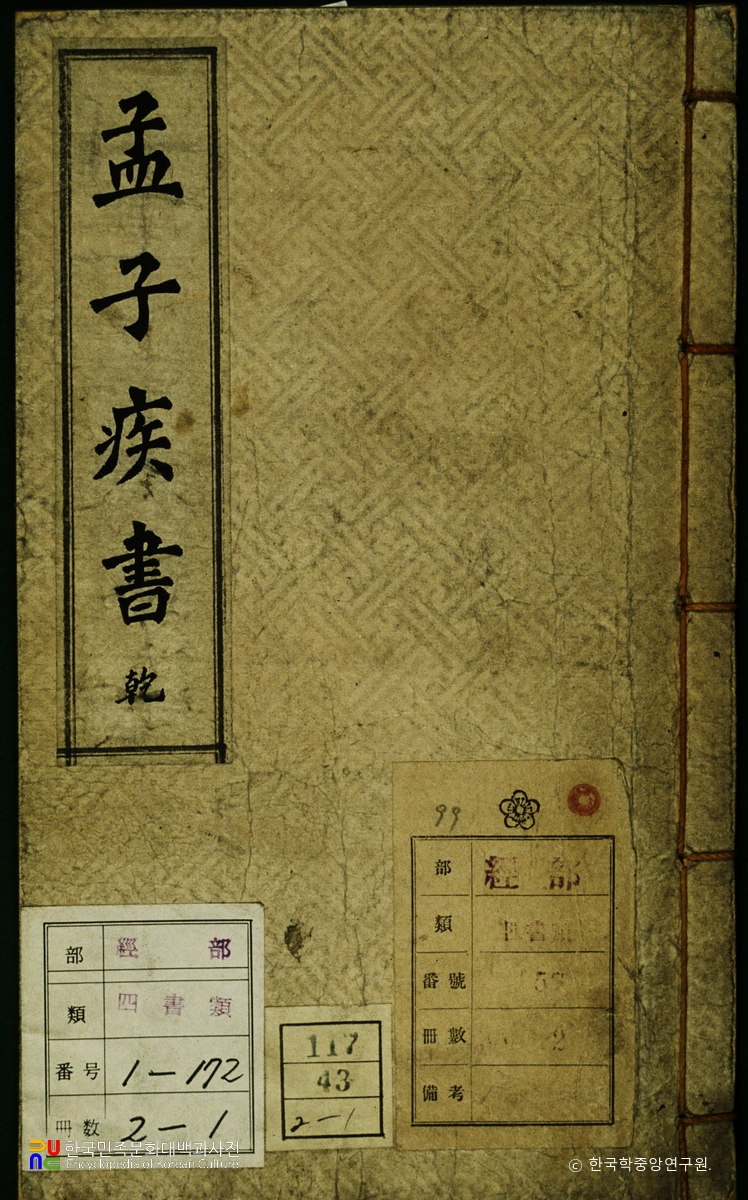 孟子疾書 乾
99
部 經部
類 四書類
番號 5
冊數 2
備考
部 經部
類 四書類
番号 1-172
冊数 2-1
117
43
2-1
한국민족문화대백과사전
Encyclopedia of Korean Culture
© 한국학중앙연구원.